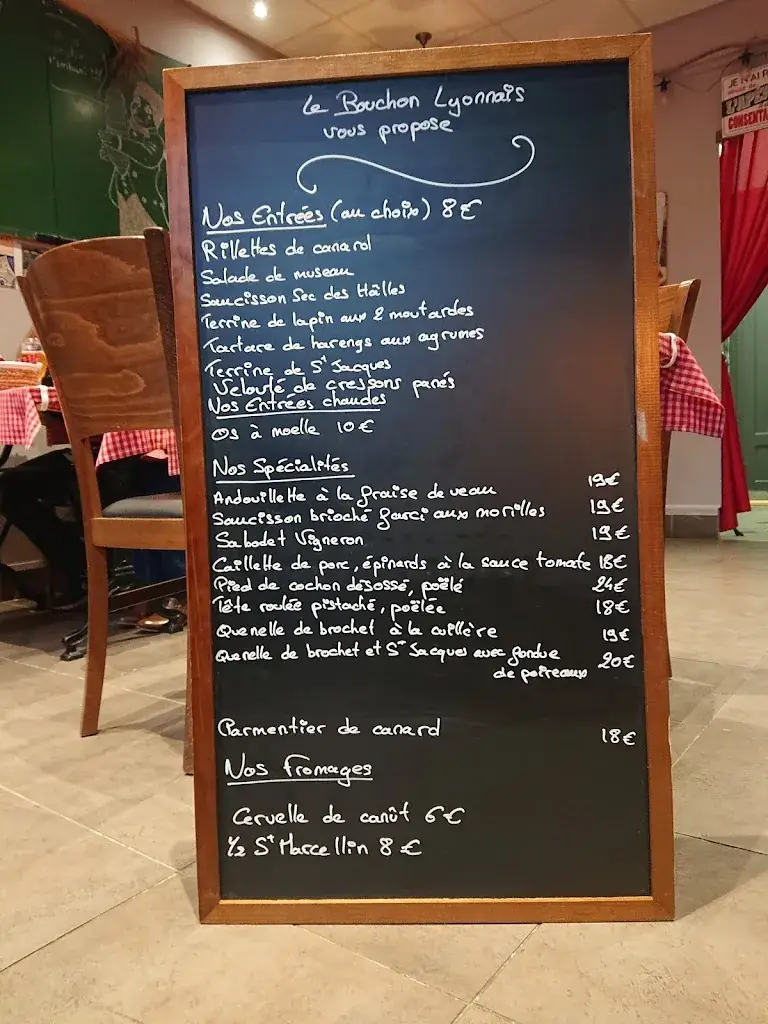 Le Bouchon Lyonnais
vous propose
Nos Entrées (au choix) 8€
Rillettes de canard
Salade de museau
Saucisson Sec des Hâlles
Terrine de lapin aux 2 moutardes
Tartare de harengs aux agrumes
Terrine de St Jacques
Velouté de cressons panés
Nos Entrées chaudes
Os à moelle 10€
Nos Spécialités
Andouillette à la fraise de veau 19€
Saucisson brioché farci aux morilles 19€
Sabodet Vigneron 19€
Caillette de porc, épinards à la sauce tomate 18€
Pied de cochon désossé, poêlé 24€
Tête roulée pistaché, poêlée 18€
Quenelle de brochet à la cuillère 19€
Quenelle de brochet et St Jacques avec fondue 20€
de poireaux
Parmentier de canard 18€
Nos Fromages
Cervelle de canût 6€
1/2 St Marcellin 8€
JE N'AI
CONSENTA